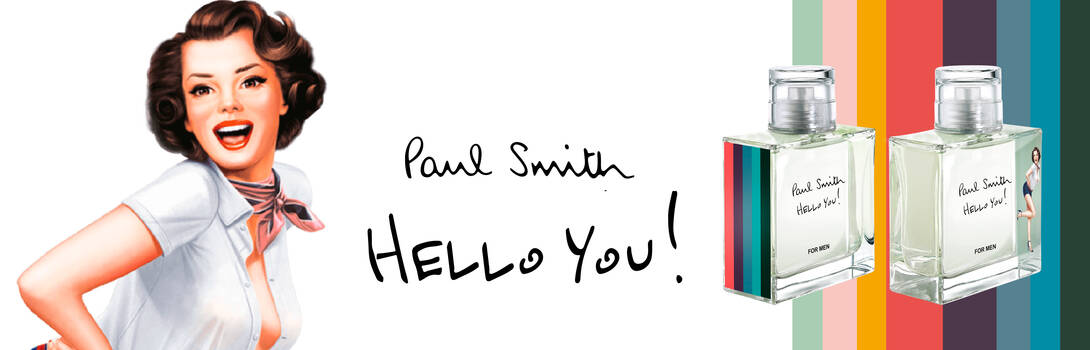 Paul Smith
HELLO YOU!
Paul Smith
HELLO YOU!
FOR MEN
Paul Smith
HELLO YOU!
FOR MEN